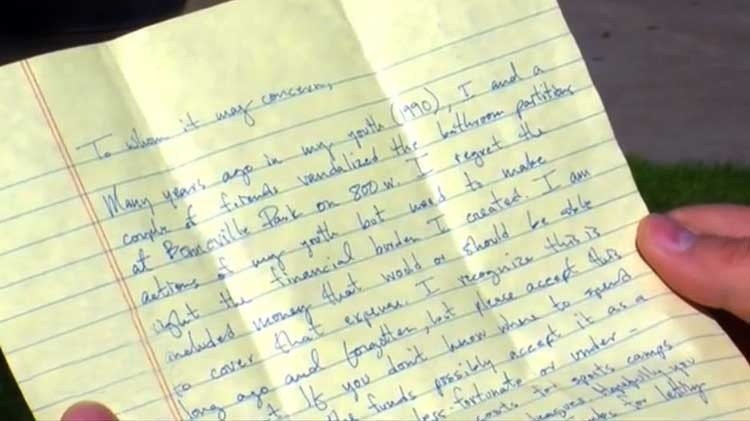 To whom it may concern,
Many years ago in my youth (1990), I and a
couple of friends vandalized the bathroom partitions
at Bonneville Park on 800 w. I regret the
actions of my youth but need to make
right the financial burden I created. I am
included money that would or should be able
to cover that expense. I recognize this is
long ago and forgotten, but please accept this
If you don't know where to spend
the funds possibly accept it as a
less-fortunate or under-
sports camps
for letting